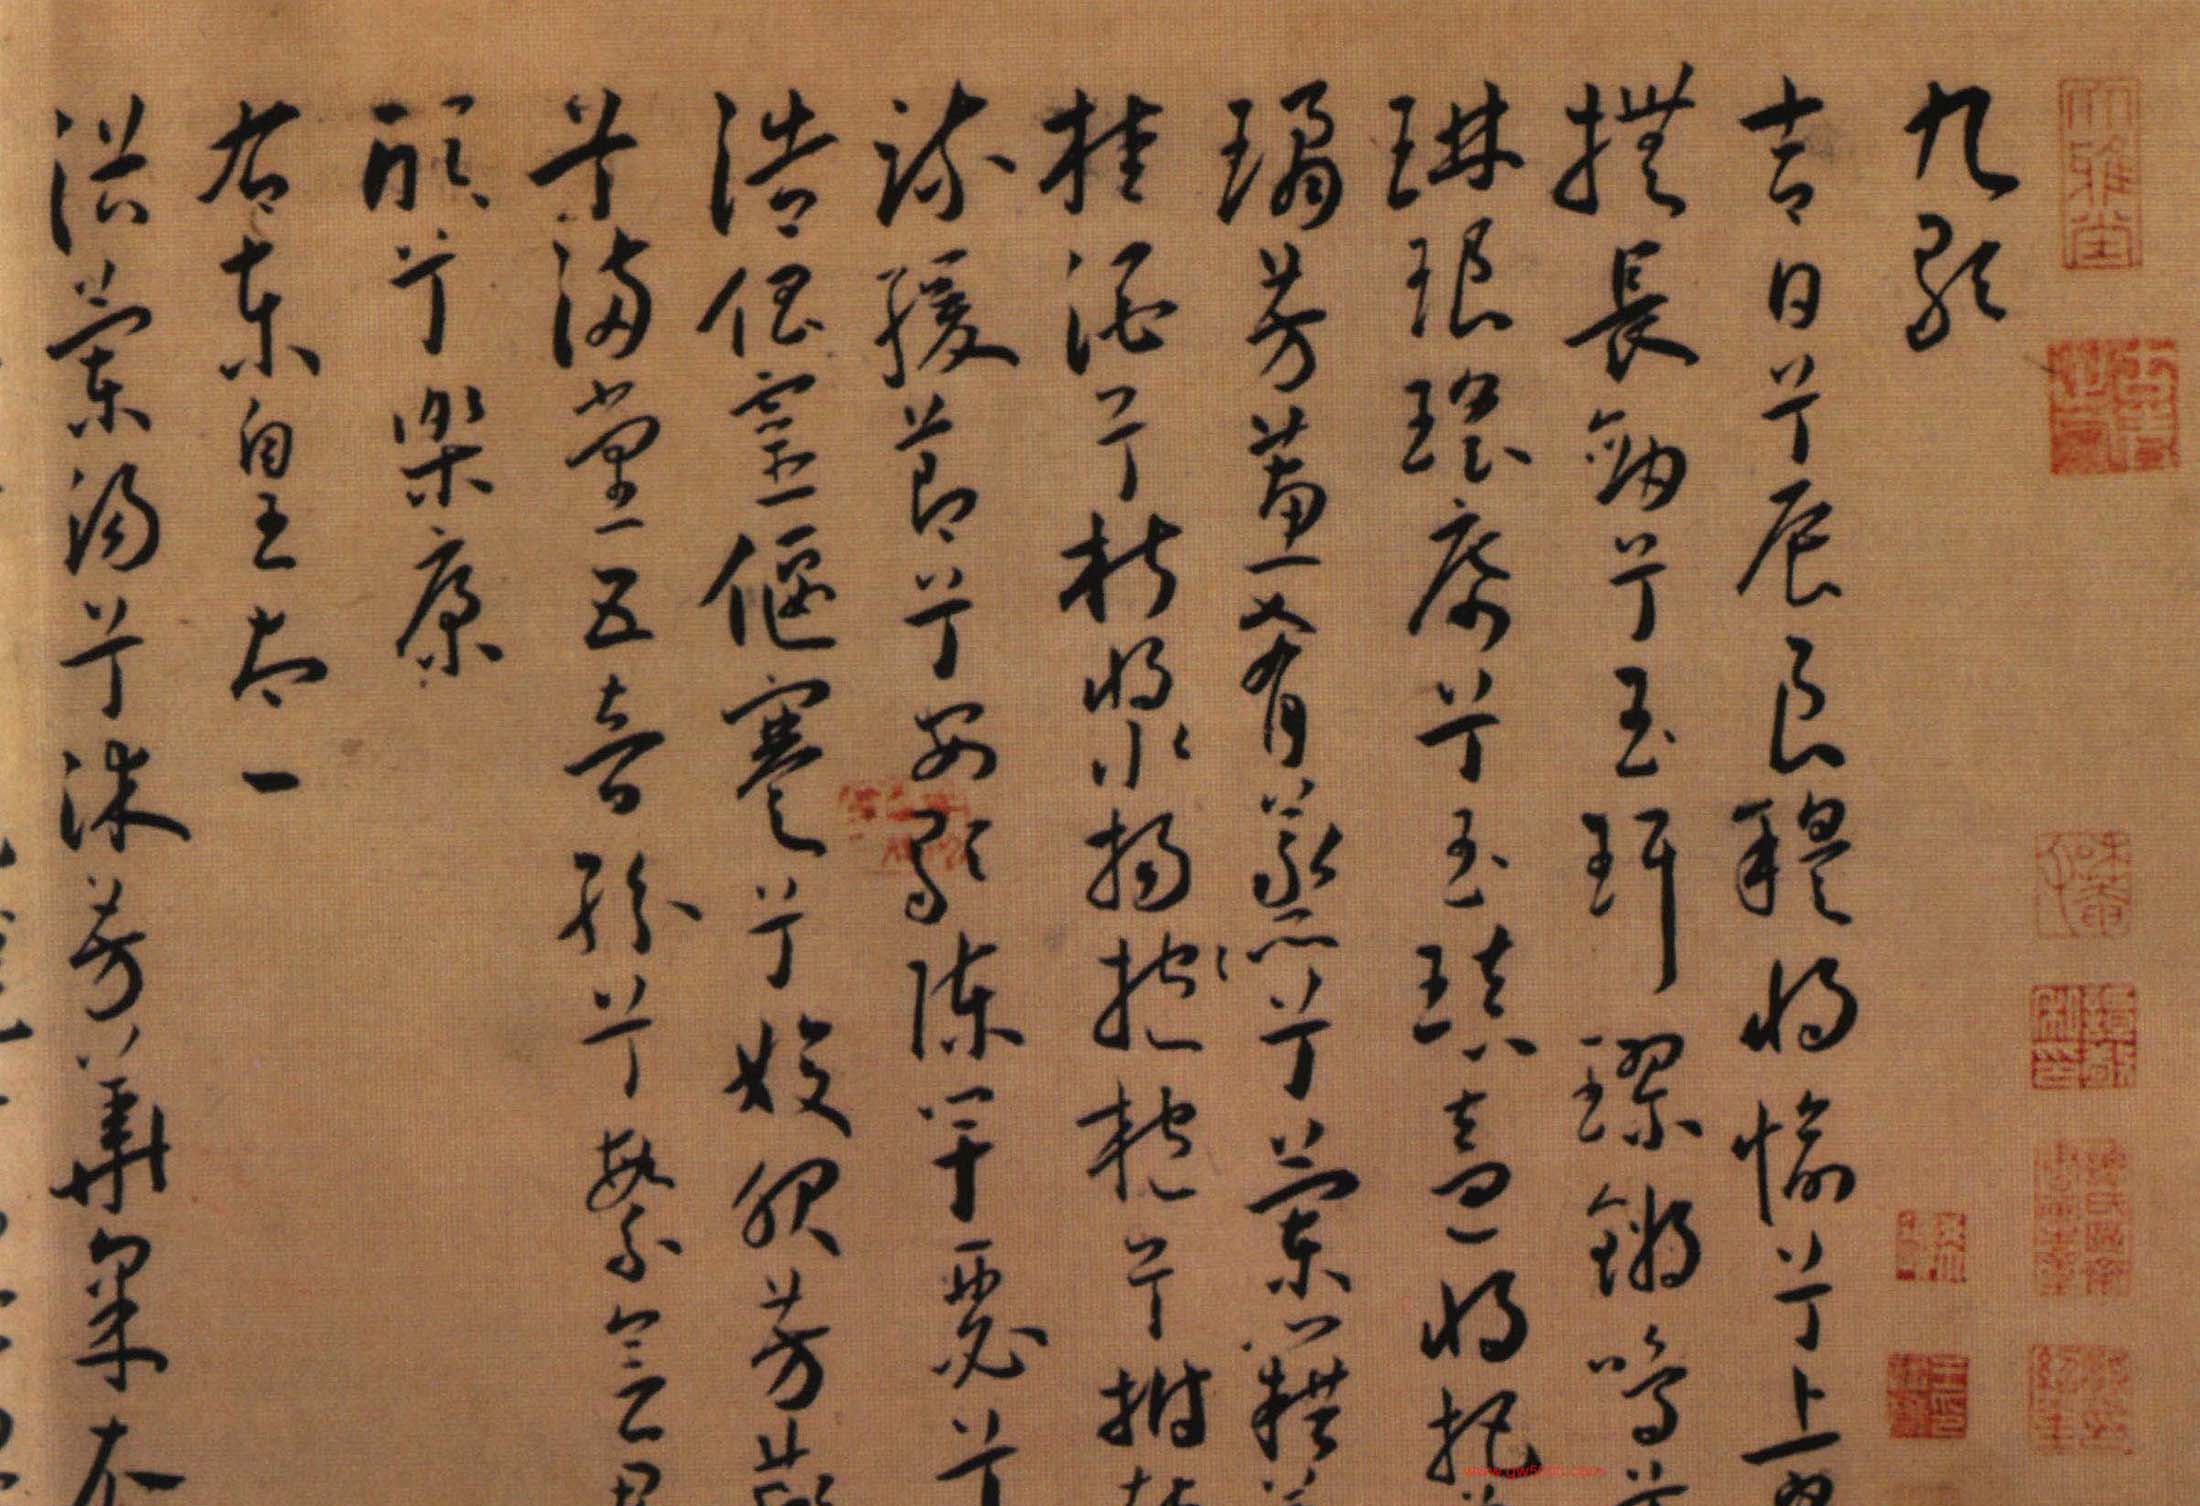 大雅堂
九歌
吉日兮辰良穆將愉兮上皇
撫長劍兮玉珥璆鏘鳴兮
琳琅瑤席兮玉瑱盍將把
璚芳蕙肴蒸兮蘭藉
桂酒兮椒漿揚抱枹兮拊鼓
疎緩節兮安歌陳竽瑟兮
浩倡靈偃蹇兮姣服芳菲
兮滿堂五音紛兮繁會君
欣兮樂康
右東皇太一
浴蘭湯兮沐芳華采衣